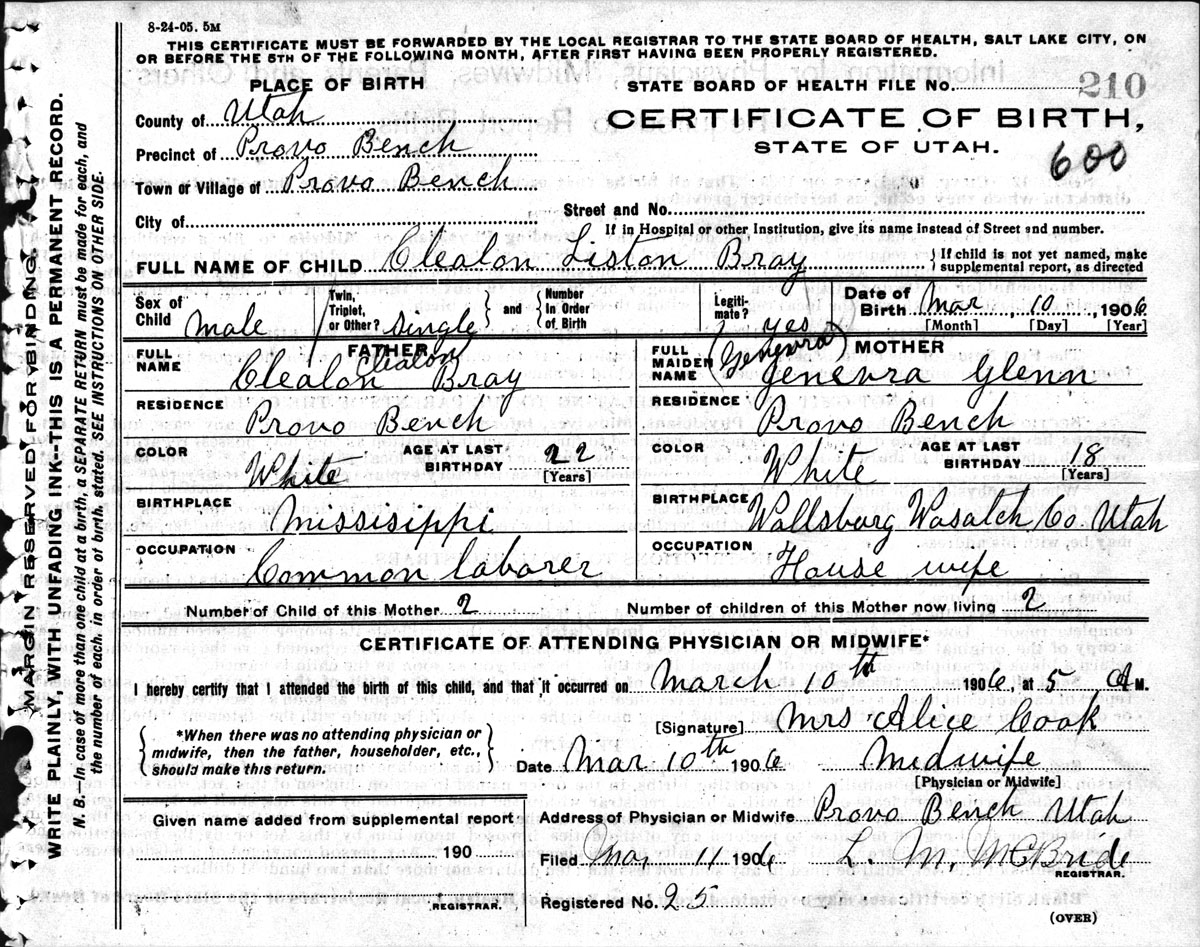 8-24-05. 5M
THIS CERTIFICATE MUST BE FORWARDED BY THE LOCAL REGISTRAR TO THE STATE BOARD OF HEALTH, SALT LAKE CITY, ON
OR BEFORE THE 5TH OF THE FOLLOWING MONTH, AFTER FIRST HAVING BEEN PROPERLY REGISTERED.
PLACE OF BIRTH
STATE BOARD OF HEALTH FILE No. 210
County of Utah
CERTIFICATE OF BIRTH,
STATE OF UTAH.
600
Precinct of Provo Bench
Town or Village of Provo Bench
City of
Street and No.
If in Hospital or other Institution, give its name instead of Street and number.
FULL NAME OF CHILD Clealon Liston Bray { If child is not yet named, make
supplemental report, as directed
Sex of Child Male
Twin, Triplet, or Other? Single } and { Number In Order of Birth
Legitimate? yes
Date of Birth Mar 10, 1906
[Month] [Day] [Year]
FATHER
FULL NAME Clealon Bray
Clealon
MOTHER
FULL MAIDEN NAME Jenevra Glenn
(Genevra)
RESIDENCE Provo Bench
RESIDENCE Provo Bench
COLOR White AGE AT LAST BIRTHDAY 22 [Years]
COLOR White AGE AT LAST BIRTHDAY 18 [Years]
BIRTHPLACE Mississippi
BIRTHPLACE Wallsburg Wasatch Co Utah
OCCUPATION Common laborer
OCCUPATION House wife
Number of Child of this Mother 2
Number of children of this Mother now living 2
CERTIFICATE OF ATTENDING PHYSICIAN OR MIDWIFE*
I hereby certify that I attended the birth of this child, and that it occurred on March 10th 1906, at 5 A M.
*When there was no attending physician or
midwife, then the father, householder, etc.,
should make this return.
[Signature] Mrs Alice Cook
Date Mar 10th 1906 Midwife
[Physician or Midwife]
Given name added from supplemental report
190
REGISTRAR.
Address of Physician or Midwife Provo Bench Utah
Filed Mar 11 1906 L. M. McBride
REGISTRAR.
Registered No. 25
(OVER)
MARGIN RESERVED FOR BINDING.
WRITE PLAINLY, WITH UNFADING INK-THIS IS A PERMANENT RECORD.
N. B.—In case of more than one child at a birth, a SEPARATE RETURN must be made for each, and
the number of each, in order of birth, stated. SEE INSTRUCTIONS ON OTHER SIDE.